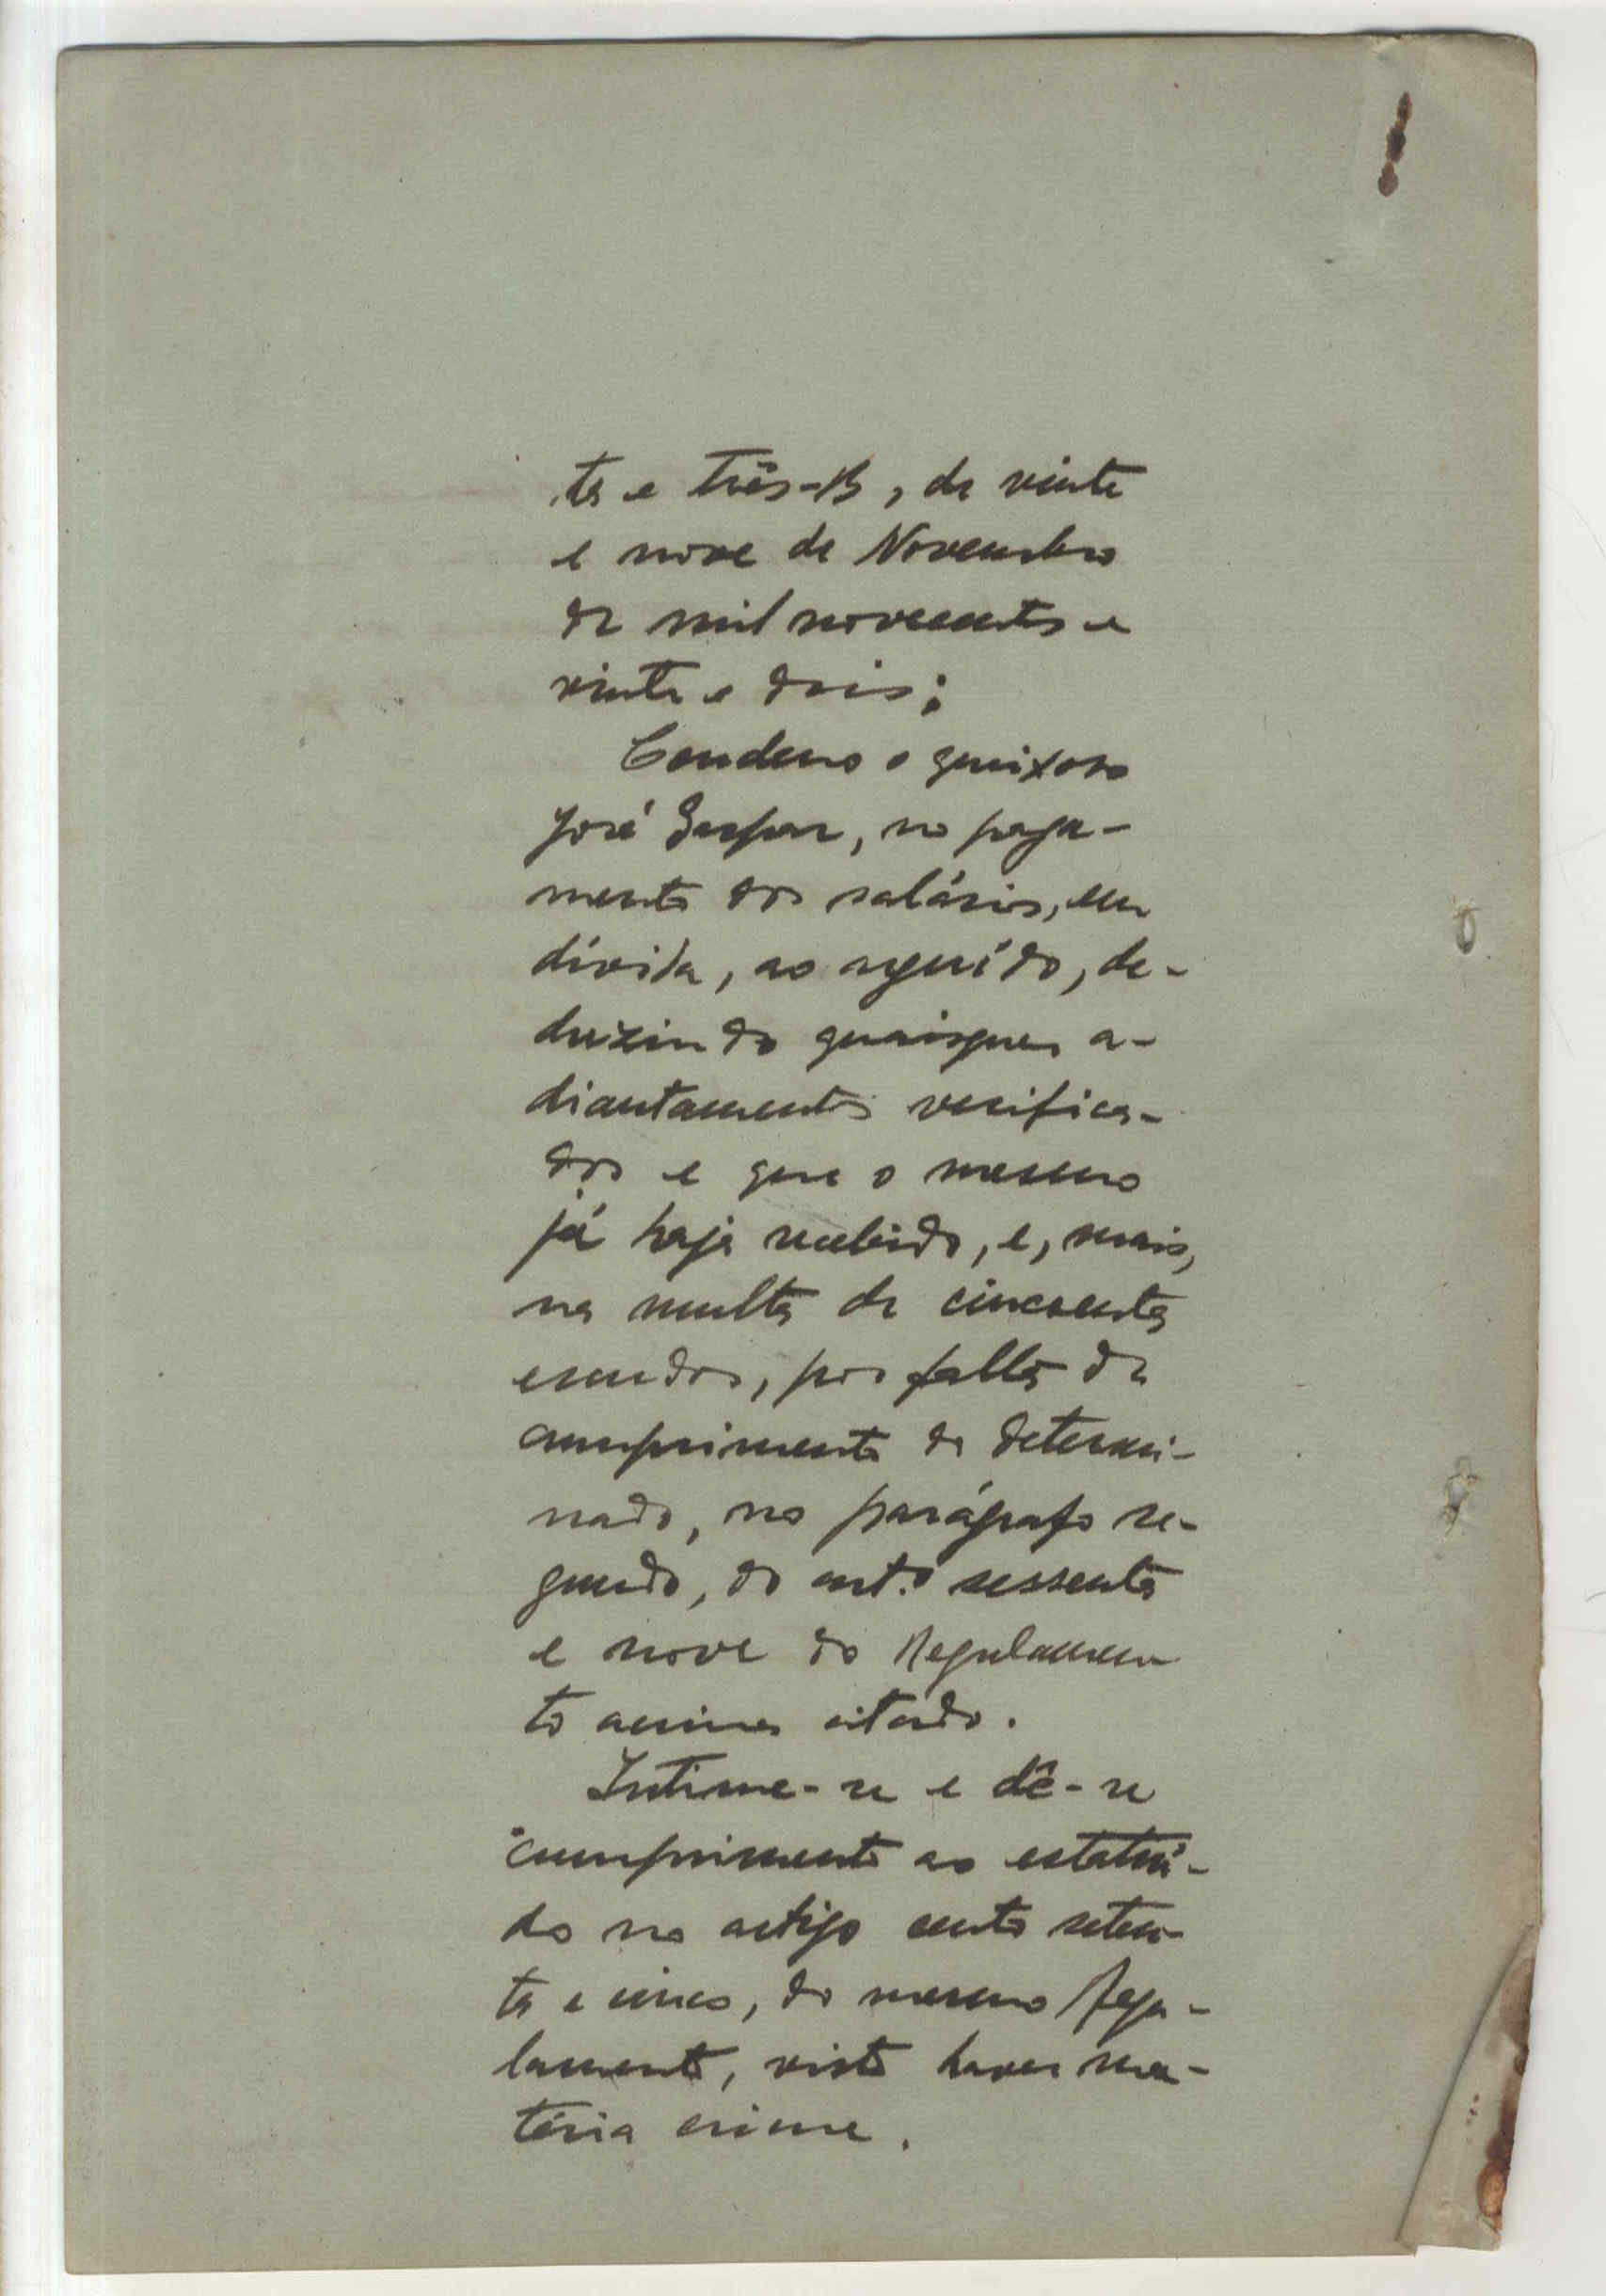 ta e três-B, de vinte
e nove de Novembro
de mil novecentos e
vinte e dois;
Condeno o queixoso
José Gaspar, no paga-
mento dos salários, em
dívida, ao arguído, de-
duzindo quaisquer a-
diantamentos verifica-
dos e que o mesmo
já haja recebido, e, mais,
na multa de cincoenta
escudos, por falta de
cumprimento do determi-
nado, no parágrafo se-
gundo, do art.º sessenta
e nove do Regulamen
to acima citado.
Intime-se e dê-se
cumprimento ao estatuí-
do no artigo cento seten-
ta e cinco, do mesmo Regu-
lamento, visto haver ma-
téria crime.